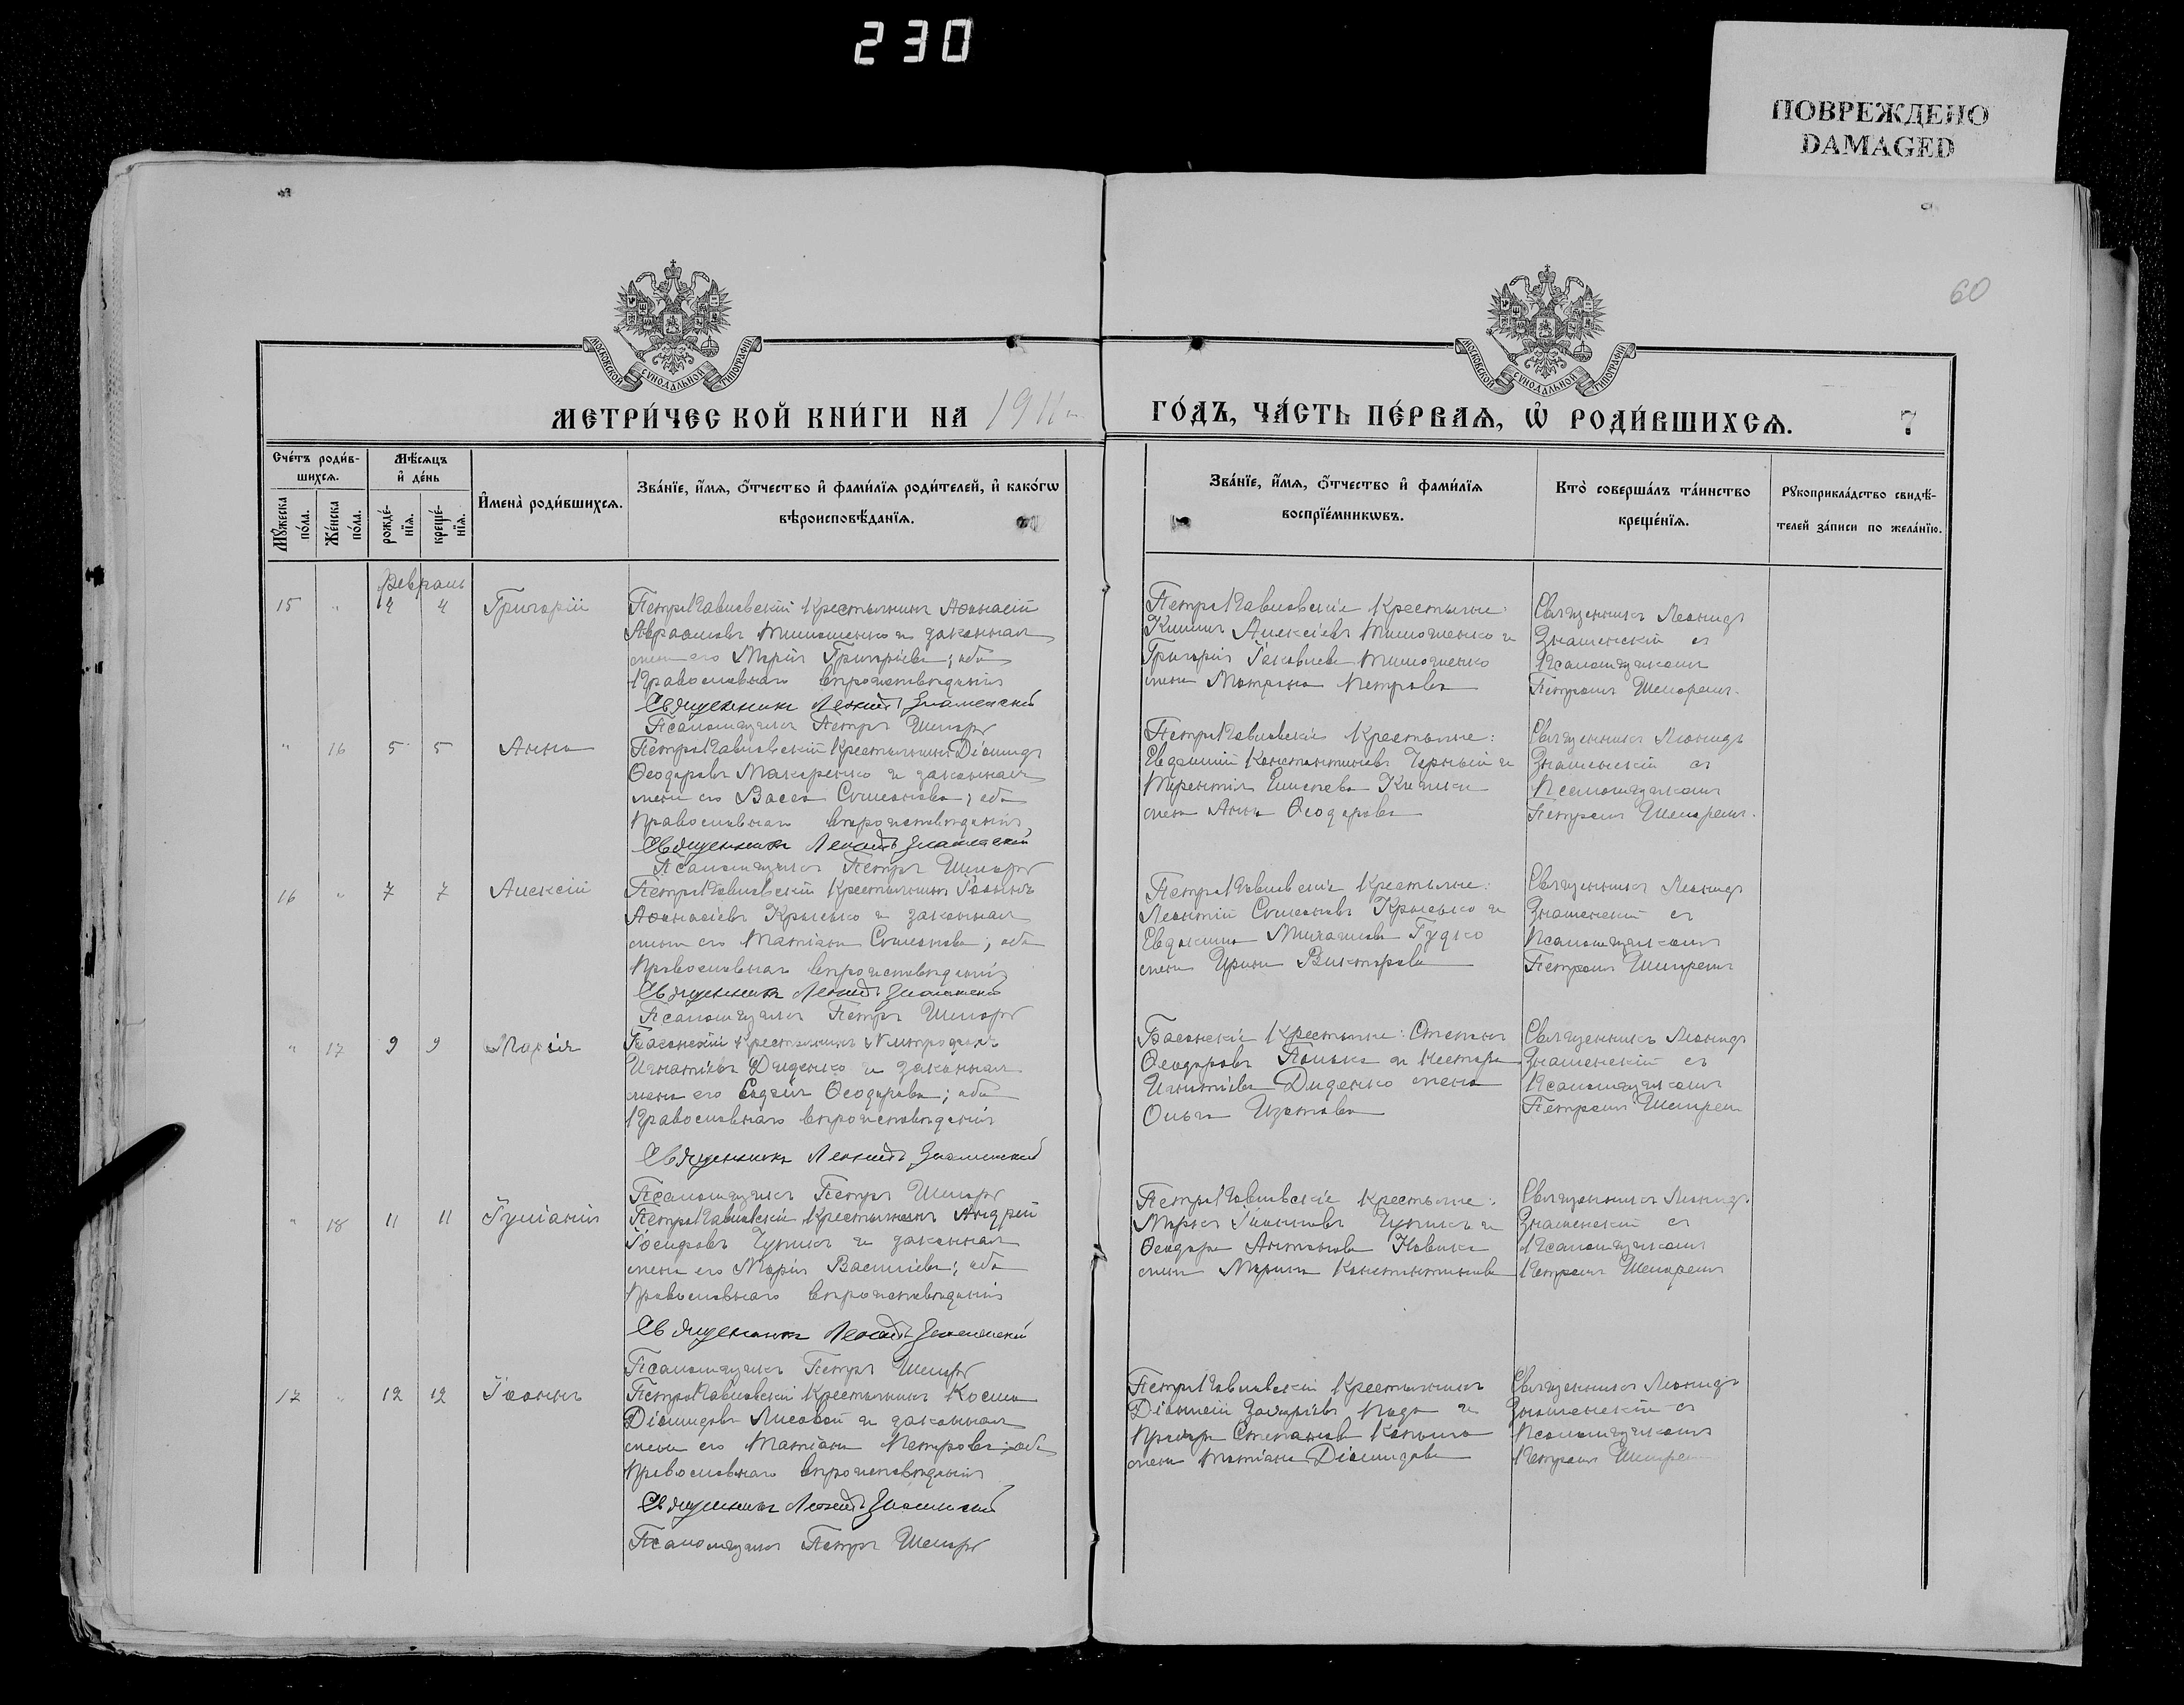 230
ПОВРЕЖДЕНО
DAMAGED
60
МОСКОВСКОЙ СѴНОДАЛЬНОЙ ТИПОГРАФІИ
МОСКОВСКОЙ СѴНОДАЛЬНОЙ ТИПОГРАФІИ
МЕТРИ́ЧЕСКОЙ КНИ́ГИ НА 1911 г.
ГО́ДЪ, ЧА́СТЬ ПЕ́РВАѦ, Ѡ҆ РОДИ́ВШИХСѦ.
7
Сче́тъ роди́в-
шихсѧ.
Мѣ́сѧцъ
и҆ де́нь
Мꙋ́жеска
по́ла.
Же́нска
по́ла.
рожде́-
нїѧ.
креще́-
нїѧ.
И҆мена̀ роди́вшихсѧ.
Зва́нїе, и҆́мѧ, ѻ҆́тчество и҆ фами́лїѧ роди́телей, и҆ како́гѡ
вѣроисповѣ́данїѧ.
Зва́нїе, и҆́мѧ, ѻ҆́тчество и҆ фами́лїѧ
воспрїе́мникѡвъ.
Кто̀ соверша́лъ та́инство
креще́нїѧ.
Рꙋкоприкла́дство свидѣ́-
телей за́писи по жела́нїю.
Февраль
15 " 4 Григорій
Петропавловскій крестьянинъ Аѳанасій
Авраамовъ Тимошенко и законная
жена его Марія Григоріева; оба
Православнаго вѣроисповѣданія
Священникъ Леонидъ Знаменскій
Псаломщикъ Петръ
Петропавловскіе крестьяне:
Алексіевъ Тимошенко и
Григорія Іаковлева Тимошенко
жена Матрона Петрова
Священникъ Леонидъ
Знаменскій съ
Псаломщикомъ
Петромъ
" 16 5 5 Анна
Петропавловскій крестьянинъ Діомидъ
Ѳеодоровъ Макаренко и законная
жена его Васса Симеонова; оба
Православнаго вѣроисповѣданія
Священникъ Леонидъ Знаменскій
Псаломщикъ Петръ
Петропавловскіе крестьяне:
Евдокимъ Константиновъ Черный и
Терентія
жена Анна Ѳеодорова
Священникъ Леонидъ
Знаменскій съ
Псаломщикомъ
Петромъ
16 " 7 7 Алексій
Петропавловскій крестьянинъ Іоаннъ
Аѳанасіевъ и законная
жена его Татіана Симеонова; оба
Православнаго вѣроисповѣданія
Священникъ Леонидъ Знаменскій
Псаломщикъ Петръ
Петропавловскіе крестьяне:
Леонтій Симеоновъ и
Гудко
жена Ирина Викторова
Священникъ Леонидъ
Знаменскій съ
Псаломщикомъ
Петромъ
" 17 9 9 Марія
крестьянинъ Митрофанъ
Игнатіевъ Диденко и законная
жена его Ѳеодорова; оба
Православнаго вѣроисповѣданія
Священникъ Леонидъ Знаменскій
Псаломщикъ Петръ
крестьяне: Степанъ
Ѳеодоровъ и Нестора
Игнатіева Диденко жена
Ольга
Священникъ Леонидъ
Знаменскій съ
Псаломщикомъ
Петромъ
" 18 11 11 Іуліанія
Петропавловскій крестьянинъ Андрей
Іосифовъ и законная
жена его Марія Василіева; оба
Православнаго вѣроисповѣданія
Священникъ Леонидъ Знаменскій
Псаломщикъ Петръ
Петропавловскіе крестьяне:
Марко Іоанновъ и
Ѳеодора Антонова Новика
жена Марина Константинова
Священникъ Леонидъ
Знаменскій съ
Псаломщикомъ
Петромъ
17 " 12 12 Іоаннъ
Петропавловскій крестьянинъ Косма
Діомидовъ Лисовой и законная
жена его Татіана Петрова; оба
Православнаго вѣроисповѣданія
Священникъ Леонидъ Знаменскій
Псаломщикъ Петръ
Петропавловскій крестьянинъ
Захаріевъ и
Степанова
жена Татіана Діомидова
Священникъ Леонидъ
Знаменскій съ
Псаломщикомъ
Петромъ